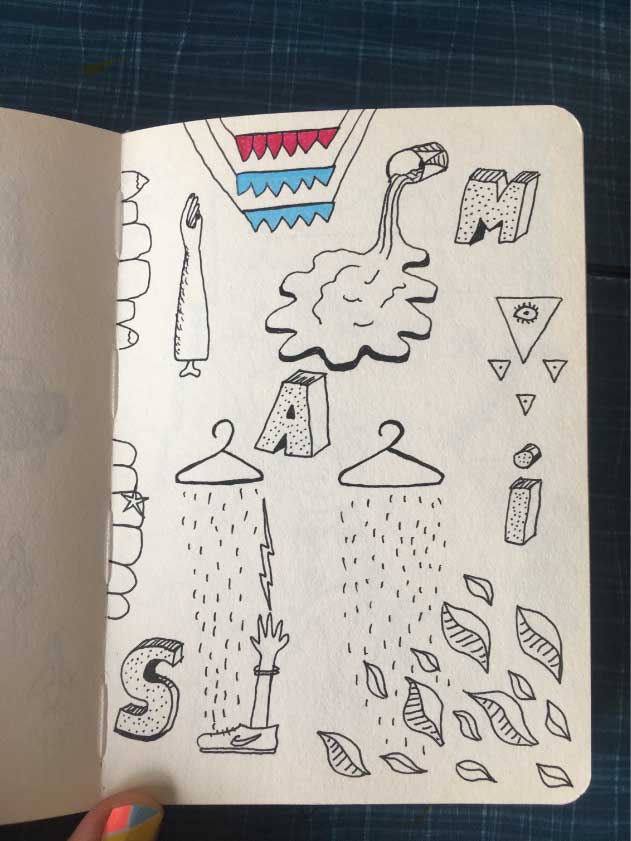 M
A
i
S